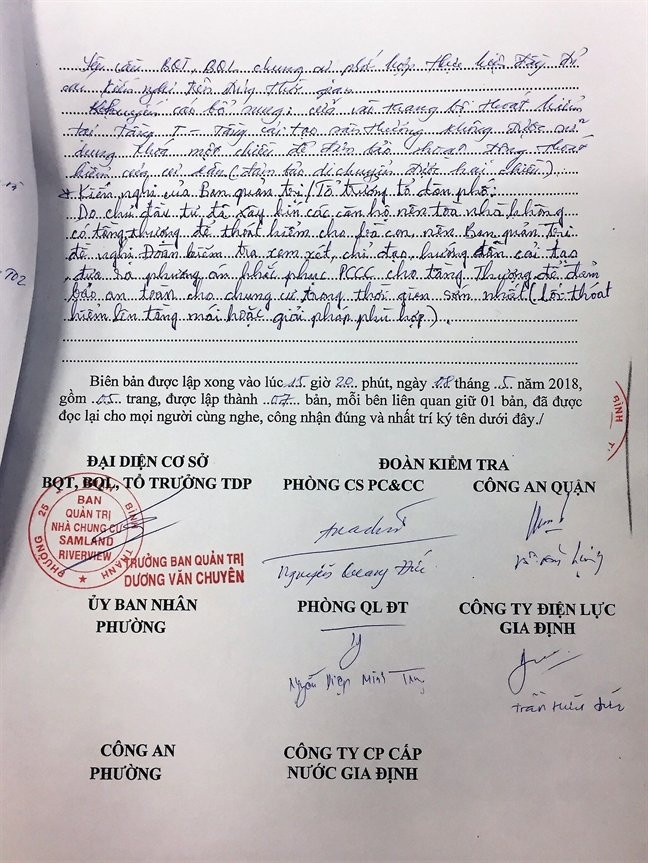 Yêu cầu BQT, BQL chung cư phối hợp thực hiện đầy đủ
các kiến nghị trên đúng thời gian
Khuyến cáo bổ sung: cửa tại thang bộ thoát hiểm
tại tầng T - Tầng cải tạo sân thượng không được sử
dụng khoá một chiều để đảm bảo thoát thoát
hiểm của cư dân (đảm bảo di chuyển được hai chiều.)
* Kiến nghị của Ban quản trị / Tổ trưởng tổ dân phố:
Do chủ đầu tư đã xây kín các căn hộ nên toà nhà không
có tầng thượng để thoát hiểm cho bà con, nên Ban quản trị
đề nghị Đoàn kiểm tra xem xét, chỉ đạo, hướng dẫn cải tạo
đưa ra phương án khắc phục PCCC cho tầng Thượng để đảm
bảo an toàn cho chung cư trong thời gian sớm nhất (lối thoát
hiểm lên tầng mái hoặc giải pháp phù hợp.)
Biên bản được lập xong vào lúc 15 giờ 20 phút, ngày 08 tháng 5 năm 2018,
gồm 05 trang, được lập thành 07 bản, mỗi bên liên quan giữ 01 bản, đã được
đọc lại cho mọi người cùng nghe, công nhận đúng và nhất trí ký tên dưới đây./
ĐẠI DIỆN CƠ SỞ
BQT, BQL, TỔ TRƯỞNG TDP
ĐOÀN KIỂM TRA
PHÒNG CS PC&CC
CÔNG AN QUẬN
PHƯỜNG 25 BÌNH THẠNH
BAN
QUẢN TRỊ
NHÀ CHUNG CƯ
SAMLAND
RIVERVIEW
TRƯỞNG BAN QUẢN TRỊ
DƯƠNG VĂN CHUYÊN
Nguyễn Quang Đức
ỦY BAN NHÂN
PHƯỜNG
PHÒNG QL ĐT
CÔNG TY ĐIỆN LỰC
GIA ĐỊNH
Nguyễn Diệp Minh
Trần Hữu Đức
CÔNG AN
PHƯỜNG
CÔNG TY CP CẤP
NƯỚC GIA ĐỊNH
BÌNH